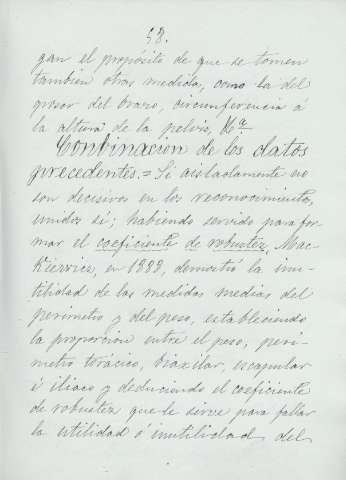 58.
gan el propósito de que se tomen
tambien otras medidas, como la del
grosor del brazo, circunferencia á
la altura de la pelvis, &ª
Combinacion de los datos
precedentes.= Si aisladamente no
son decisivos en los reconocimientos,
unidos sí; habiendo servido para for-
mar el coeficiente de robustez, Mac-
Kiervicz, en 1889, demostró la inu-
tilidad de las medidas medias del
perimetro y del peso, estableciendo
la proporcion entre el peso, perí-
metro torácico, biaxilar, escapular
é iliaco y deduciendo el coeficiente
de robustez que le sirve para fallar
la utilidad ó inutilidad del